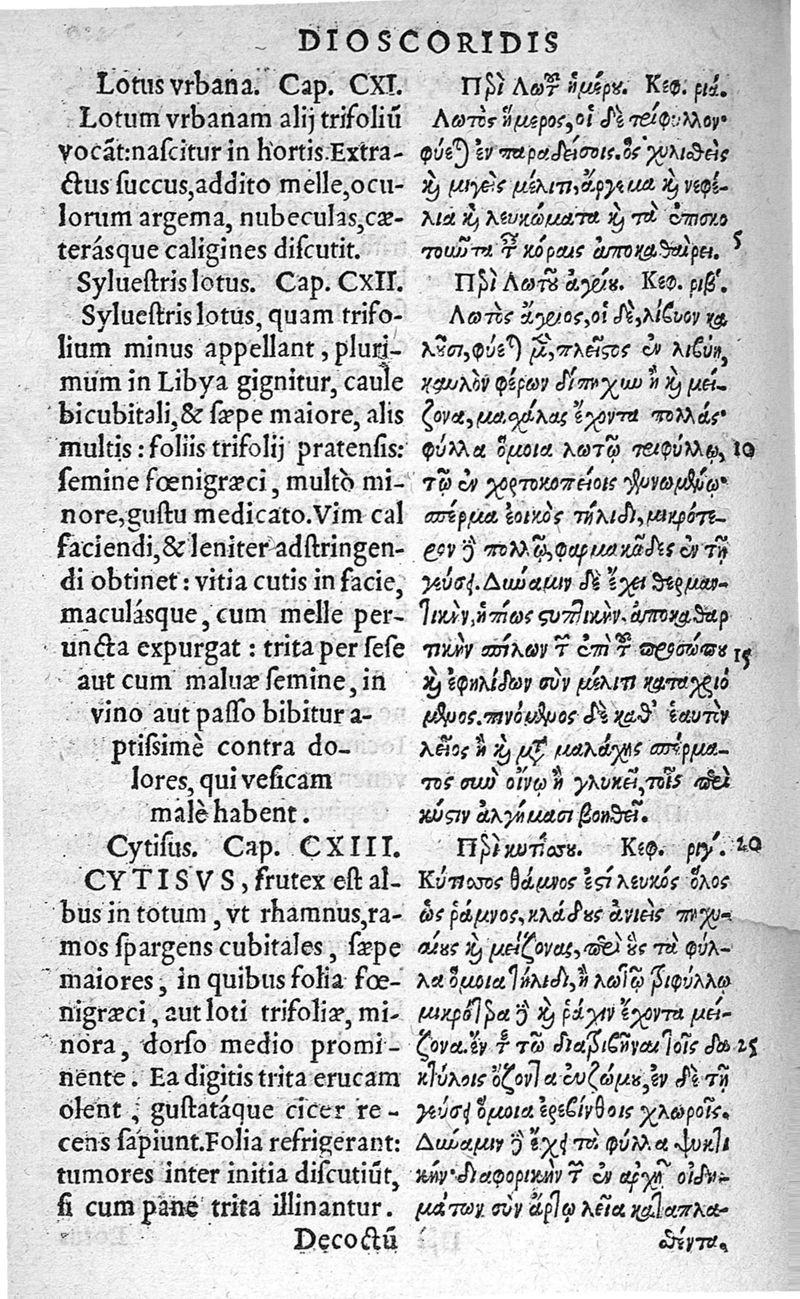 DIOSCORIDIS
Lotus vrbana. Cap. CXI.
Lotum vrbanam alij trifoliũ
vocãt:nascitur in hortis.Extra-
ctus succus,addito melle,ocu-
lorum argema, nubeculas,cæ-
terásque caligines discutit.
Syluestris lotus. Cap. CXII.
Syluestris lotus, quam trifo-
lium minus appellant, pluri-
mùm in Libya gignitur, caule
bicubitali,& sæpe maiore, alis
multis: foliis trifolij pratensis:
semine fœnigræci, multò mi-
nore,gustu medicato.Vim cal
faciendi,& leniter adstringen-
di obtinet: vitia cutis in facie,
maculásque, cum melle per-
uncta expurgat: trita per sese
aut cum maluæ semine, in
vino aut passo bibitur a-
ptissimè contra do-
lores, qui vesicam
malè habent.
Cytisus. Cap. CXIII.
CYTISVS, frutex est al-
bus in totum, vt rhamnus,ra-
mos spargens cubitales, sæpe
maiores, in quibus folia fœ-
nigræci, aut loti trifoliæ, mi-
nora, dorso medio promi-
nente. Ea digitis trita erucam
olent, gustatáque cicer re-
cens sapiunt.Folia refrigerant:
tumores inter initia discutiũt,
si cum pane trita illinantur.
Decoctũ
Περὶ Λωτοῦ ἡμέρου. Κεφ. ριά.
Λωτὸς ἥμερος,οἱ δὲ τρίφυλλον·
φύεται ἐν παραδείσοις.ὃς χυλιθεὶς
καὶ μιγεὶς μέλιτι,ἄργεμα καὶ νεφέ-
λια καὶ λευκώματα καὶ τὰ ἐπισκο
τοῦντα ταῖς κόραις ἀποκαθαίρει. 5
Περὶ Λωτοῦ ἀγρίου. Κεφ. ριβ΄.
Λωτὸς ἄγριος,οἱ δὲ,λίβυον κα
λοῦσι,φύεται μὲν,πλεῖστος ἐν λιβύῃ,
καυλὸν φέρων δίπηχυν ἢ καὶ μεί-
ζονα,μαχάλας ἔχοντα πολλάς·
φύλλα ὅμοια λωτῷ τριφύλλῳ, 10
τῷ ἐν χορτοκοπείοις γινομένῳ·
σπέρμα ἐοικὸς τήλιδι,μικρότε-
ρον δὲ πολλῷ,φαρμακῶδες ἐν τῇ
γεύσει.Δύναμιν δὲ ἔχει θερμαν-
τικὴν,ἠπίως στυπτικὴν.ἀποκαθαρ
τικὴν σπίλων τῶν ἐπὶ τοῦ προσώπου 15
καὶ ἐφηλίδων σὺν μέλιτι καταχριό
μενος.πινόμενος δὲ καθ' ἑαυτὸν
λεῖος ἢ καὶ μετὰ μαλάχης σπέρμα-
τος σὺν οἴνῳ ἢ γλυκεῖ,τοῖς περὶ
κύστιν ἀλγήμασι βοηθεῖ.
Περὶ κυτίσου. Κεφ. ριγ΄. 20
Κύτισος θάμνος ἐστὶ λευκός ὅλος
ὡς ῥάμνος,κλάδους ἀνιεὶς πηχυ-
αίους καὶ μείζονας,περὶ οὓς τὰ φύλ-
λα ὅμοια τήλιδι,ἢ λωτῷ τριφύλλῳ
μικρότερα δὲ καὶ ῥάχιν ἔχοντα μεί-
ζονα.ἐν δὲ τῷ διατριβῆναι τοῖς δα 25
κτύλοις ὄζοντα εὐζώμου,ἐν δὲ τῇ
γεύσει ὅμοια ἐρεβίνθοις χλωροῖς.
Δύναμιν δὲ ἔχει τὰ φύλλα ψυκτι
κήν·διαφορικὴν τῶν ἐν ἀρχῇ οἰδη-
μάτων σὺν ἄρτῳ λεῖα καταπλα-
θέντα.